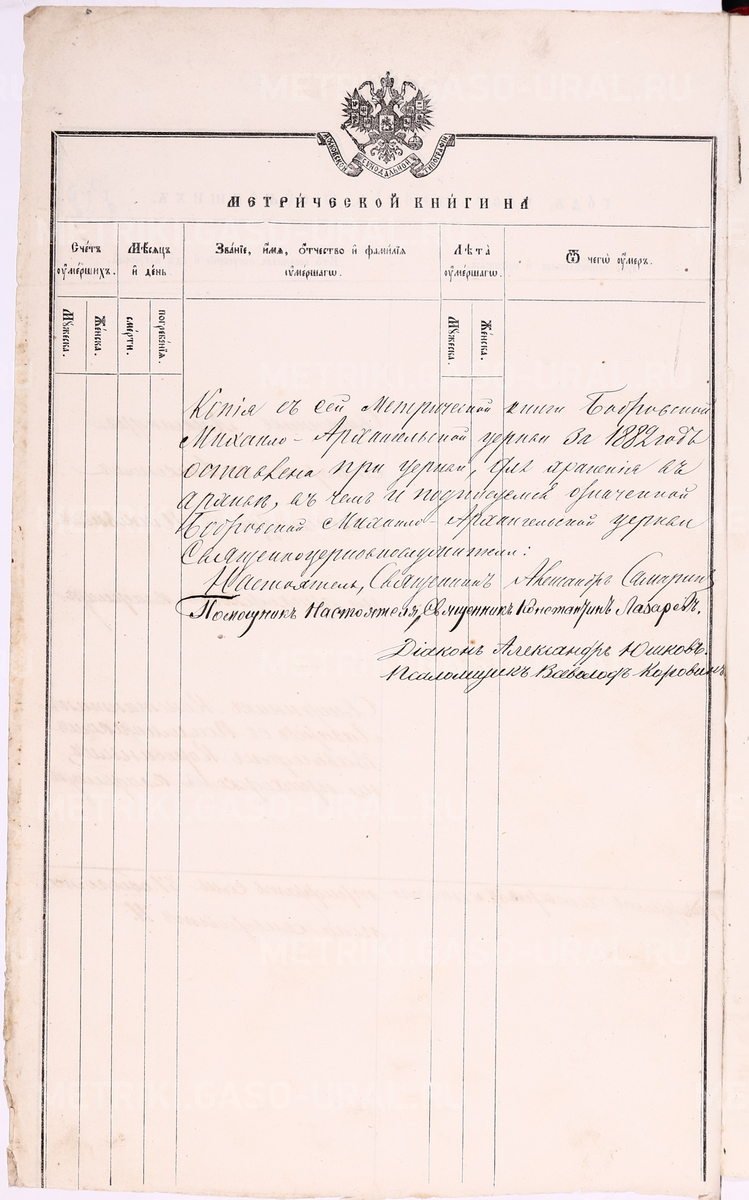 METRIKI.GASO-URAL.RU
МОСКОВСКОЙ СУНОДАЛЬНОЙ ТИПОГРАФІИ
МЕТРИ́ЧЕСКОЙ КНИ́ГИ НА
Сче́тъ ѹ҆ме́ршихъ.
Мѣ́сяцъ и҆ де́нь.
Зва́нїе, и҆́мя, ѻ҆́тчество и҆ фами́лїя ѹ҆ме́ршагѡ.
Лѣ́та ѹ҆ме́ршагѡ.
Ѿ чегѡ̀ ѹ҆́меръ.
Мꙋ́жеска.
Же́нска.
сме́рти.
погребе́нїя.
Мꙋ́жеска.
Же́нска.
Копія съ сей Метрической книги Бобровской
Михаило-Архангельской церкви за 1882 годъ
оставлена при церкви, для храненія въ
архивѣ, въ чемъ и подписуемся означенной
Бобровской Михаило-Архангельской церкви
Священноцерковнослужители:
Настоятель, Священникъ Александръ Самаринъ
Помощникъ Настоятеля, Священникъ Константинъ Лазаревъ.
Діаконъ Александръ Юшковъ.
Псаломщикъ Всеволодъ Коровинъ